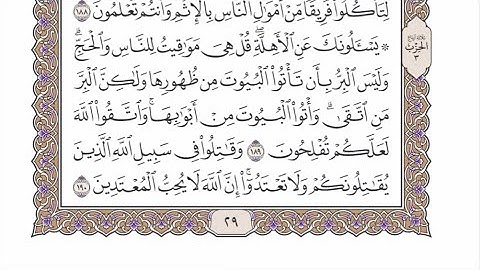 لِتَأْكُلُوا۟ فَرِيقًا مِّنْ أَمْوَٰلِ ٱلنَّاسِ بِٱلْإِثْمِ وَأَنتُمْ تَعْلَمُونَ ١٨٨
۞ يَسْـَٔلُونَكَ عَنِ ٱلْأَهِلَّةِ ۖ قُلْ هِىَ مَوَٰقِيتُ لِلنَّاسِ وَٱلْحَجِّ ۗ
وَلَيْسَ ٱلْبِرُّ بِأَن تَأْتُوا۟ ٱلْبُيُوتَ مِن ظُهُورِهَا وَلَٰكِنَّ ٱلْبِرَّ
مَنِ ٱتَّقَىٰ ۗ وَأْتُوا۟ ٱلْبُيُوتَ مِنْ أَبْوَٰبِهَا ۚ وَٱتَّقُوا۟ ٱللَّهَ
لَعَلَّكُمْ تُفْلِحُونَ ١٨٩ وَقَٰتِلُوا۟ فِى سَبِيلِ ٱللَّهِ ٱلَّذِينَ
يُقَٰتِلُونَكُمْ وَلَا تَعْتَدُوٓا۟ ۚ إِنَّ ٱللَّهَ لَا يُحِبُّ ٱلْمُعْتَدِينَ ١٩٠
الحزب
٣
٢٩